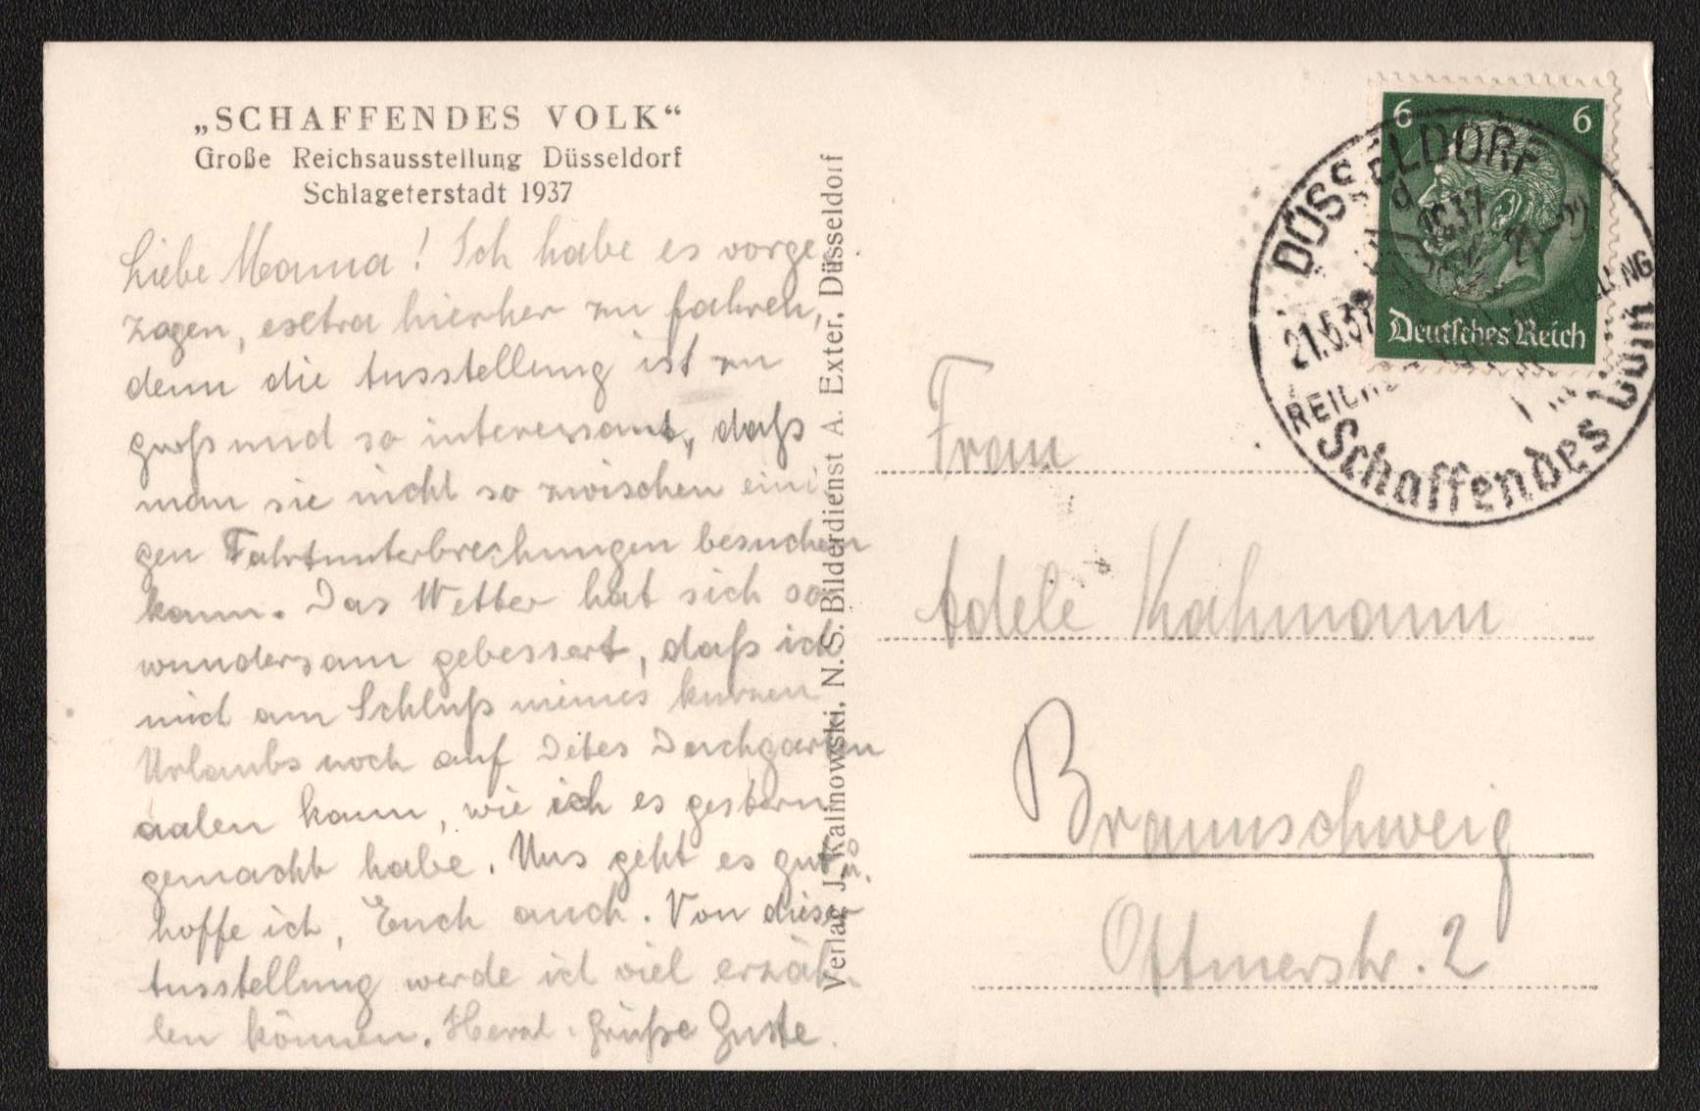 „SCHAFFENDES VOLK“
Große Reichsausstellung Düsseldorf
Schlageterstadt 1937
Liebe Mama! Ich habe es vorge
zogen, extra hierher zu fahren,
denn die Ausstellung ist zu
groß und so interessant, daß
man sie nicht so zwischen eini
gen Fahrtunterbrechungen besuchen
kann. Das Wetter hat sich so
wundersam gebessert, daß ich
mich am Schluß meines kurzen
Urlaubs noch auf Dachgarten
aalen kann, wie ich es gestern
gemacht habe. Uns geht es gut u.
hoffe ich, Euch auch. Von dieser
Ausstellung werde ich viel erzäh
len können. Herzl. Grüße Guste.
Verlag J. Kalinowski, N.S. Bilderdienst A. Exter, Düsseldorf
6 6
Deutsches Reich
DÜSSELDORF
1937
21.5.37
Schaffendes Volk
Frau
Adele Kahmann
Braunschweig
Ottmerstr. 2